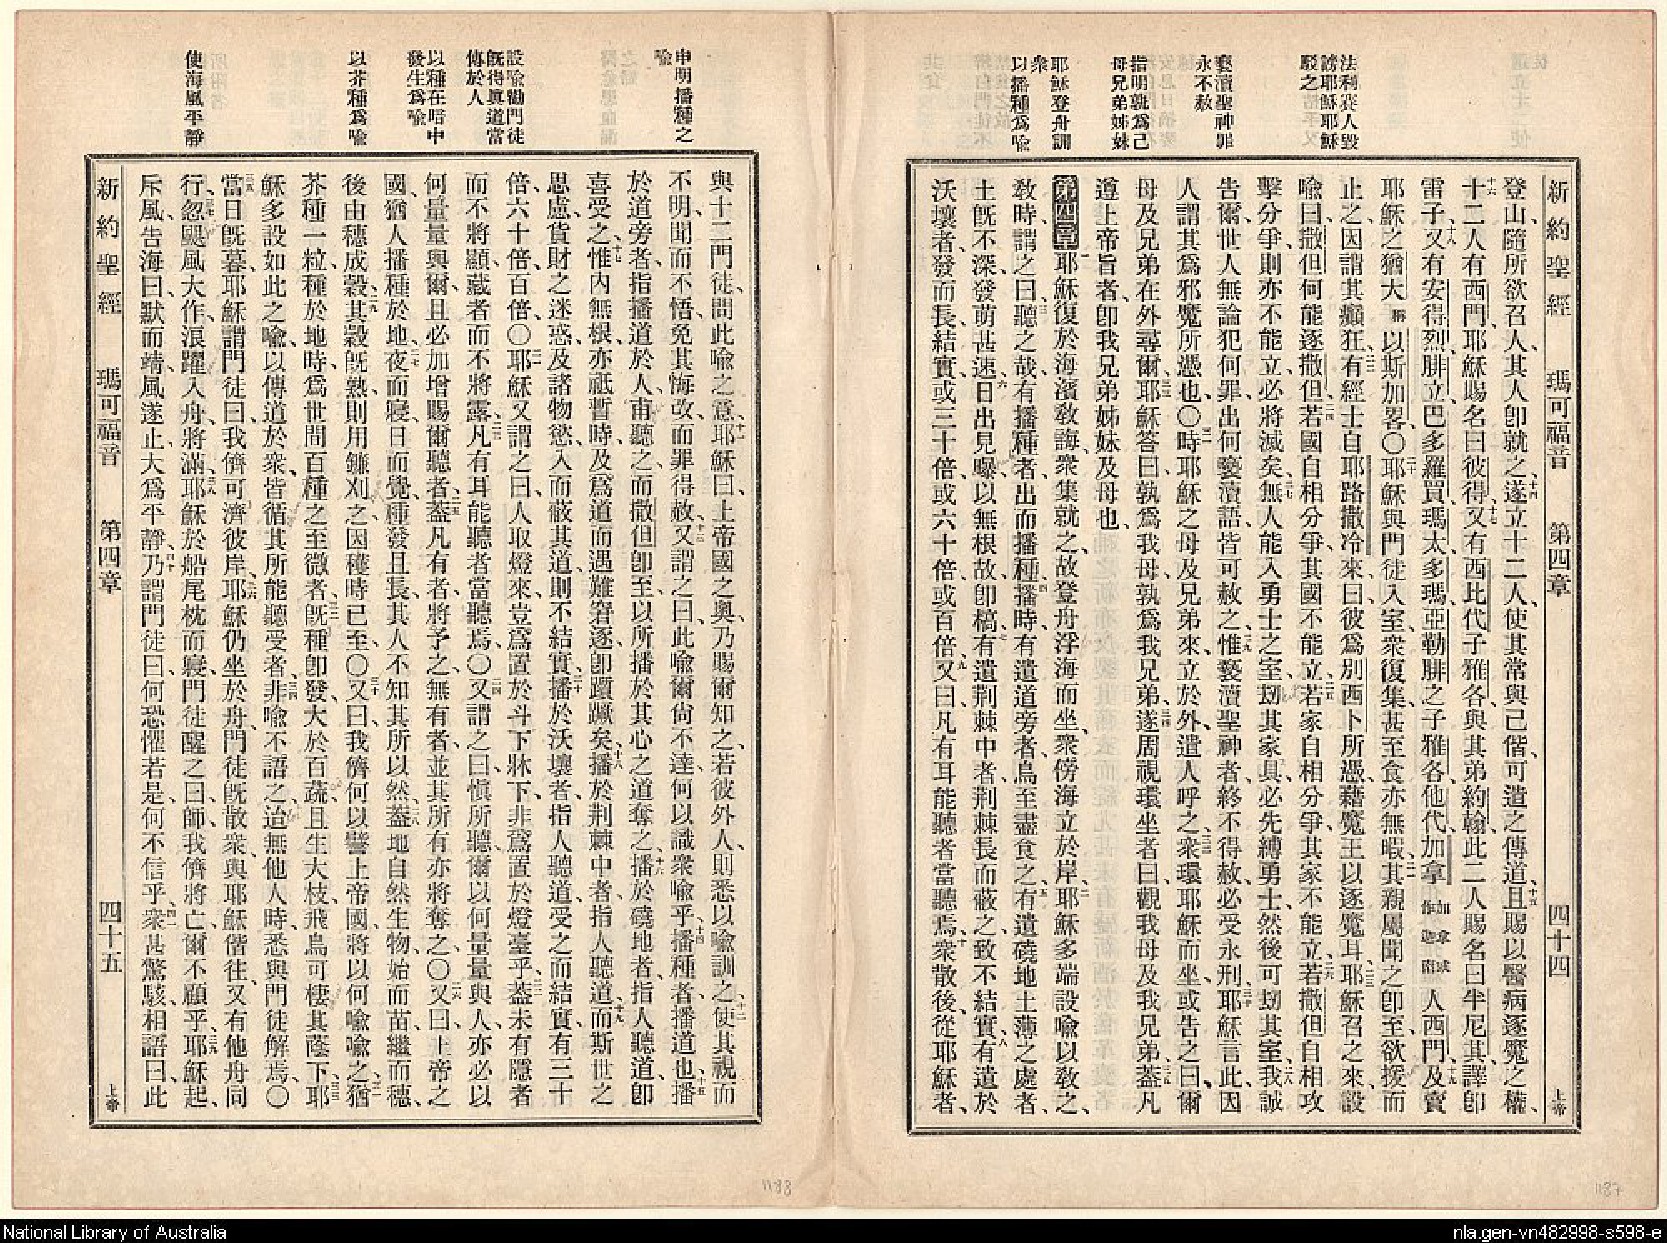 新約聖經 瑪可福音 第四章 四十四 上帝
法利賽人毀
謗耶穌耶穌
駁之
褻瀆聖神罪
永不赦
指明孰爲己
母兄弟姊妹
耶穌登舟訓
衆
以播種爲喩
登山、隨所欲召人、其人卽就之、十四遂立十二人、使其常與己偕、可遣之傳道、十五且賜以醫病逐魔之權、
十六十二人有西門、耶穌賜名曰彼得、十七又有西比代子雅各、與其弟約翰、此二人賜名曰半尼其、譯卽
雷子、十八又有安得烈、腓立、巴多羅買、瑪太、多瑪、亞勒腓之子雅各、他代、加拿人西門、十九及賣
耶穌之猶大以斯加畧〇二十耶穌與門徒入室、衆復集、甚至食亦無暇、二一其親屬聞之卽至、欲援而
止之、因謂其癲狂、二二有經士自耶路撒冷來、曰、彼爲別西卜所憑、藉魔王以逐魔耳、二三耶穌召之來、設
喩曰、撒但何能逐撒但、二四若國自相分爭、其國不能立、二五若家自相分爭、其家不能立、二六若撒但自相攻
擊分爭、則亦不能立、必將滅矣、二七無人能入勇士之室、刧其家具、必先縛勇士、然後可刧其室、二八我誠
告爾、世人無論犯何罪、出何褻瀆語、皆可赦之、二九惟褻瀆聖神者、終不得赦、必受永刑、三十耶穌言此、因
人謂其爲邪魔所憑也〇三一時耶穌之母及兄弟來、立於外、遣人呼之、三二衆環耶穌而坐、或告之曰、爾
母及兄弟在外尋爾、三三耶穌答曰、孰爲我母、孰爲我兄弟、三四遂周視環坐者曰、觀我母及我兄弟、三五蓋凡
遵上帝旨者、卽我兄弟姊妹及母也、
第四章一耶穌復於海濱敎誨、衆集就之、故登舟浮海而坐、衆傍海立於岸、二耶穌多端設喩以敎之、
敎時、謂之曰、三聽之哉、有播種者出而播種、四播時有遺道旁者、鳥至盡食之、五有遺磽地土薄之處者、
土旣不深、發萌甚速、六日出見曝、以無根故卽槁、七有遺荆棘中者、荆棘長而蔽之、致不結實、八有遺於
沃壤者、發而長、結實、或三十倍、或六十倍、或百倍、九又曰、凡有耳能聽者當聽焉、十衆散後、從耶穌者、
新約聖經 瑪可福音 第四章 四十五 上帝
申明播種之
喩
設喩勸門徒
旣得眞道當
傳於人
以種在暗中
發生爲喩
以芥種爲喩
使海風平靜
與十二門徒、問此喩之意、十一耶穌曰、上帝國之奧、乃賜爾知之、若彼外人、則悉以喩訓之、十二使其視而
不明、聞而不悟、免其悔改而罪得赦、十三又謂之曰、此喩爾尙不達、何以識衆喩乎、十四播種者、播道也、十五播
於道旁者、指播道於人、甫聽之、而撒但卽至、以所播於其心之道奪之、十六播於磽地者、指人聽道、卽
喜受之、十七惟內無根、亦祗暫時、及爲道而遇難窘逐、卽躓蹶矣、十八播於荆棘中者、指人聽道、十九而斯世之
思慮、貨財之迷惑、及諸物慾、入而蔽其道、則不結實、二十播於沃壤者、指人聽道受之、而結實有三十
倍、六十倍、百倍、〇二一耶穌又謂之曰、人取燈來、豈爲置於斗下牀下、非爲置於燈臺乎、二二蓋未有隱者
而不將顯、藏者而不將露、二三凡有耳能聽者當聽焉、〇二四又謂之曰、愼所聽、爾以何量量與人、亦必以
何量量與爾、且必加增賜爾聽者、二五蓋凡有者、將予之、無有者、並其所有亦將奪之、〇二六又曰、上帝之
國、猶人播種於地、二七夜而寢、日而覺、種發且長、其人不知其所以然、二八蓋地自然生物、始而苗、繼而穗、
後由穗成穀、二九其穀旣熟、則用鎌刈之、因穫時已至〇三十又曰、我儕何以譬上帝國、將以何喩喩之、三一猶
芥種一粒、種於地時、爲世間百種之至微者、三二旣種卽發、大於百蔬、且生大枝、飛鳥可棲其蔭下、三三耶
穌多設如此之喩、以傳道於衆、皆循其所能聽受者、三四非喩不語之、迨無他人時、悉與門徒解焉、〇
三五當日旣暮、耶穌謂門徒曰、我儕可濟彼岸、三六耶穌仍坐於舟、門徒旣散衆、與耶穌偕往、又有他舟同
行、三七忽颶風大作、浪躍入舟將滿、三八耶穌於船尾枕而寢、門徒醒之曰、師、我儕將亡、爾不顧乎、三九耶穌起、
斥風、吿海曰、默而靖、風遂止、大爲平靜、四十乃謂門徒曰、何恐懼若是、何不信乎、四一衆甚驚駭、相語曰、此
National Library of Australia
nla.gen-vn482998-s598-e
1188
1187